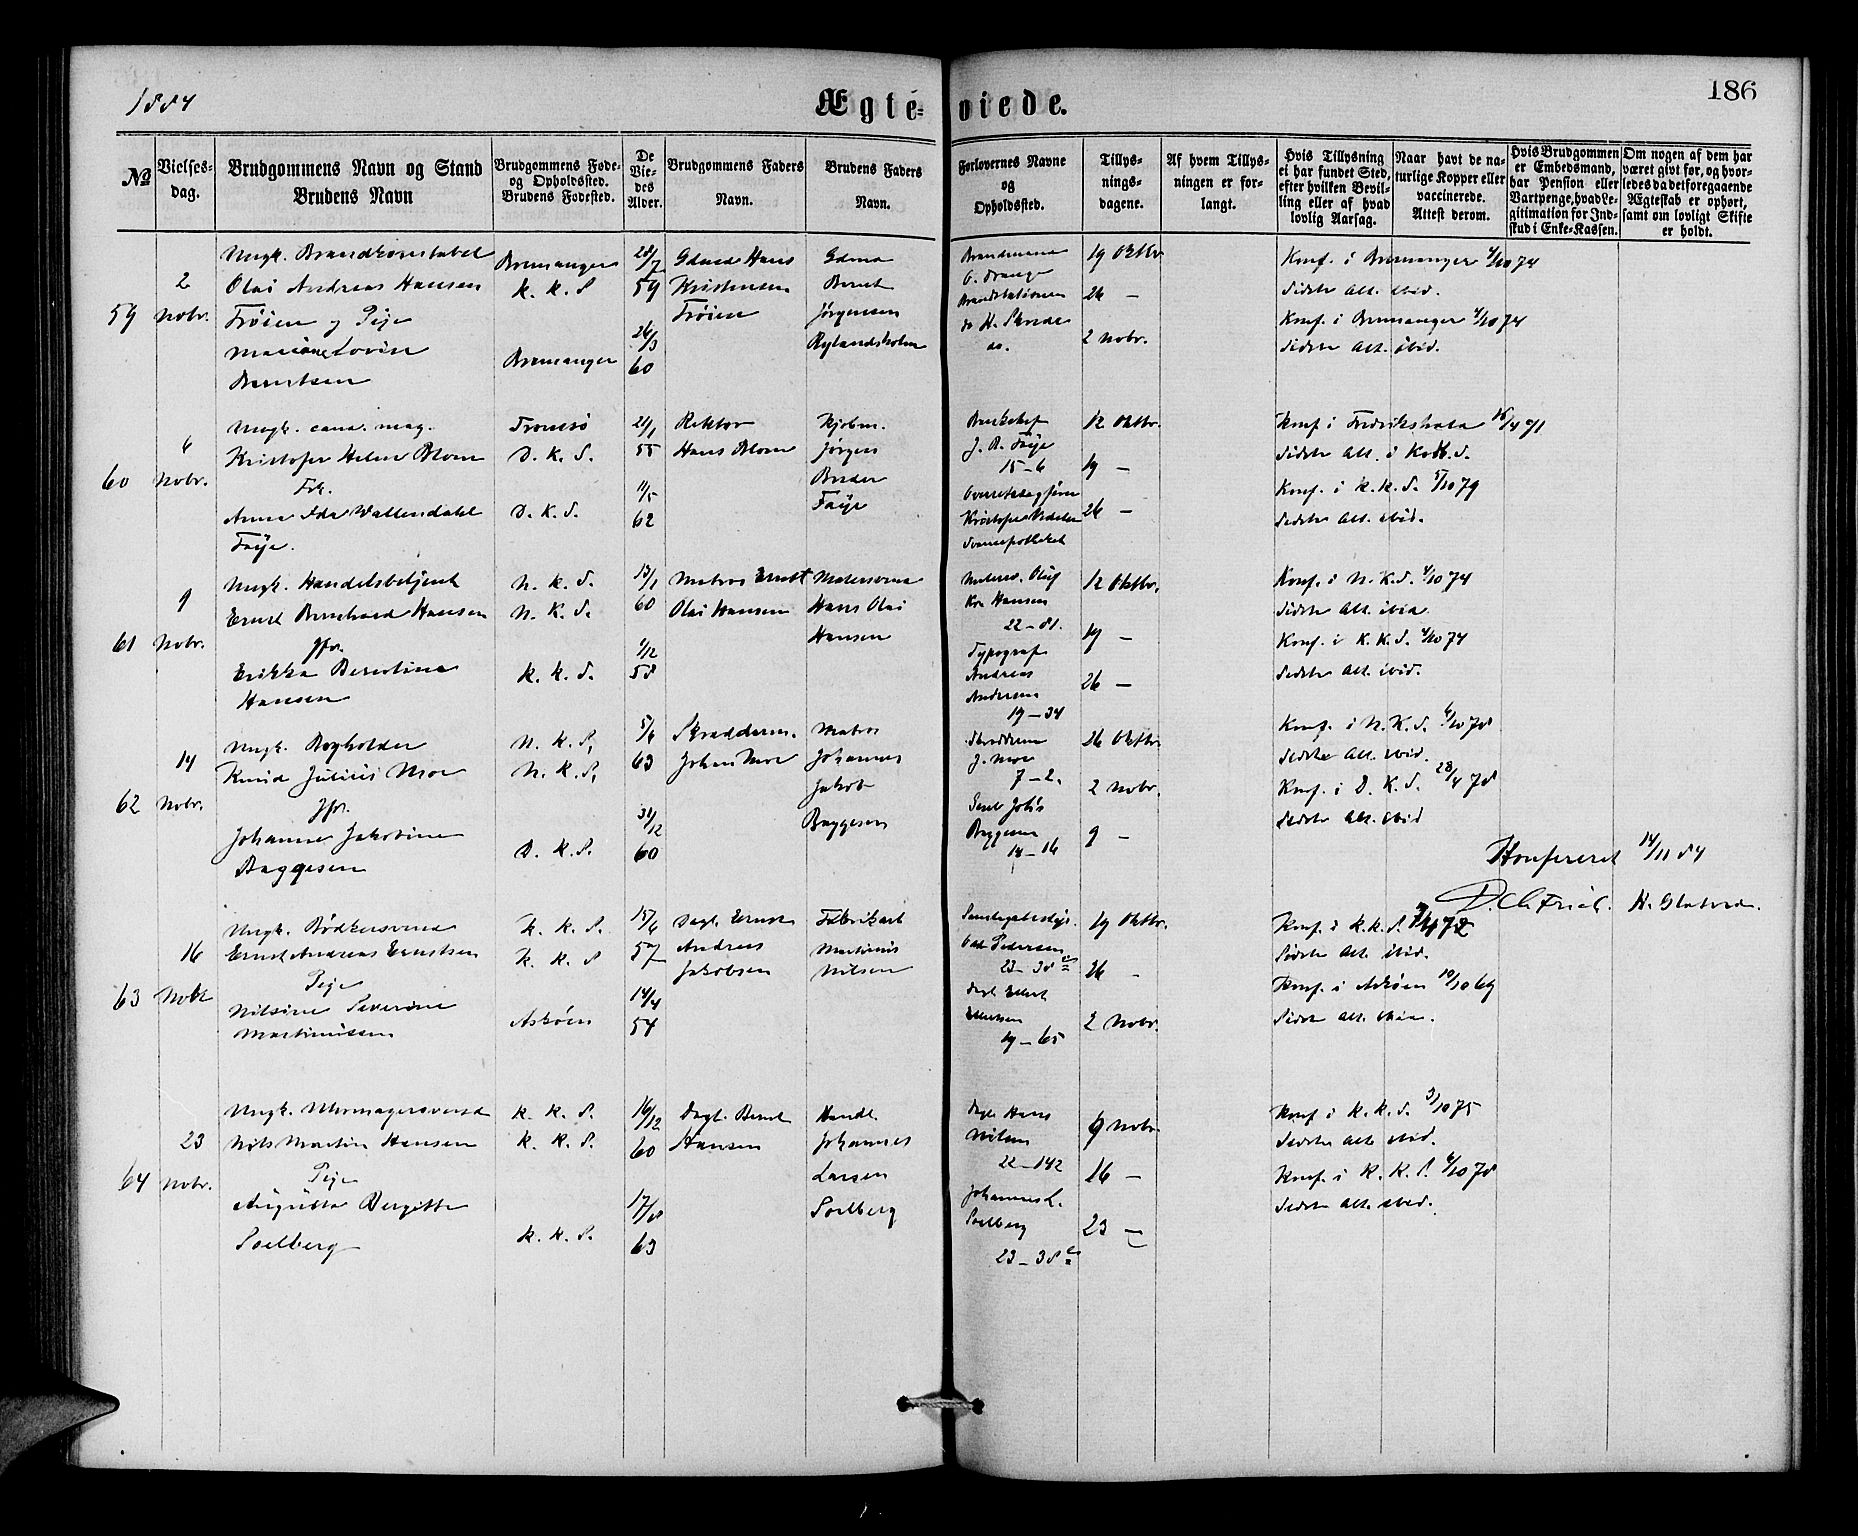 1884
Ægte-
viede.
186
№
Vielses-
dag.
Brudgommens Navn og Stand
Brudens Navn
Brudgommens Føde-
og Opholdssted.
Brudens Fødested.
De
Vie-
des
Alder.
Brudgommens Faders
Navn.
Brudens Faders
Navn.
Forlovernes Navne
og
Opholdssted.
Tillys-
nings-
dagene.
Af hvem Tillys-
ningen er for-
langt.
Hvis Tillysning
ei har fundet Sted,
efter hvilken Bevil-
ling eller af hvad
lovlig Aarsag.
Naar havt de na-
turlige Kopper eller
vaccinerede.
Attest derom.
Hvis Brudgommen
er Embedsmand,
har Pension eller
Vartpenge, hvad Le-
gitimation for Ind-
skud i Enke-Kassen.
Om nogen af dem har
været givt før, og hvor-
ledes da det foregaaende
Ægteskab er ophørt,
samt om lovligt Skifte
er holdt.
59
2
Nobr.
Ungk. Brandkonstabel
Olai Andreas Hansen
Frøien og Pige
Mariane Lovise
Berntsen
Bremanger
K. K. S
Bremanger
28/7
59
26/3
60
Gdmd Hans
Kristensen
Frøien
Gdma
Bernt
Jørgensen
Rylandsholm
Brandstationen
do H. Skrede
do.
19 Oktbr
26 —
2 Nobr.
Konf. i Bremanger 4/10 74
Sidste Alt. ibid.
Konf. i Bremanger 4/10 74
Sidste Alt. ibid.
60
6
Nobr.
Ungk. cand. mag.
Kristofer Helm Blom
Frk.
Anna Ida Wallendahl
Faye.
Tromsø
D. K. S.
D. K. S.
21/1
55
11/5
62
Rektor
Hans Blom
Kjøbm.
Jørgen
Breder
Faye
J. B. Faye
15–6
Svaneapotheket
12 Oktbr.
19 —
26 —
Konf i Fredrikshald 16/4 71
Sidste Alt. i Korsk.
Konf. i K. K. S. 5/10 79
Sidste Alt. ibid.
61
9
Nobr.
Ungk. Handelsbetjent
Ernst Bernhard Hansen
Jfr.
Erikka Berentine
Hansen
N. K. S.
N. K. S.
K. K. S.
13/1
60
1/12
58
Matros Ernst
Olai Hansen
Malersvend
Hans Olai
Hansen
Hansen
22–81.
Typograf
Andreas
Andersen
19–34
12 Oktbr.
19 —
26 —
Konf. i N. K. S. 4/10 74
Sidste Alt. ibid.
Konf. i K. K. S. 4/10 74
Sidste Alt. ibid.
62
14
Nobr.
Ungk. Bogholder
Knud Julius Moe
Jfr.
Johanne Jakobine
Baggesen
N. K. S.
N. K. S.
D. K. S.
5/6
63
31/12
60
Skrædderm.
Johan Moe
Matros
Johannes
Jakob
Baggesen
J. Moe
7–2.
Baggesen
14–16
26 Oktbr.
2 Nobr.
9 —
Konf. i N. K. S. 6/10 78
Sidste Alt. ibid.
Konf. i D. K. S. 28/4 78
Sidste Alt. ibid
Konfereret 14/11 84
63
16
Nobr
Ungk. Bødkersvend
Ernst Andreas Ernstsen
Pige
Nilsine Severine
Martinussen
K. K. S.
K. K. S
Askøen
15/6
57
14/4
54
Dagl. Ernst
Andreas
Jakobsen
Fabrikarb
Martinus
Nilsen
Pedersen
23–38
Dagl. Ellert
19–65
19 Oktbr.
26 –
2 Nobr.
Sidste Alt. ibid.
Konf. i Askøen 10/10 69
Sidste Alt. ibid.
64
23
Nobr.
Ungk. Uhrmagersvend
Nils Martin Hansen
Pige
Augusta Bergitte
Soelberg
K. K. S.
K. K. S.
K. K. S.
16/12
60
17/8
63
Dagl. Bernt
Hansen
Handl.
Johannes
Larsen
Soelberg
Dagl. Hans
Nilsen
22–142
Johannes L.
Soelberg
23–38
9 Nobr.
16 —
23 —
Konf i K. K. S. 3/10 75
Sidste Alt. ibid.
Konf. i K. K. S. 6/10 78
Sidste Alt. ibid.